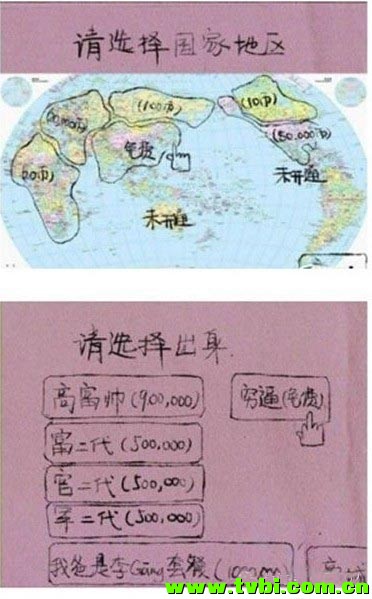 请选择国家地区
(100币)
(10币)
(50,000币)
免费
未开通
未开通
请选择出身
高富帅(900,000)
穷逼(免费)
富二代(500,000)
官二代(500,000)
军二代(500,000)
我爸是李Gang套餐
www.tvbi.com.cn